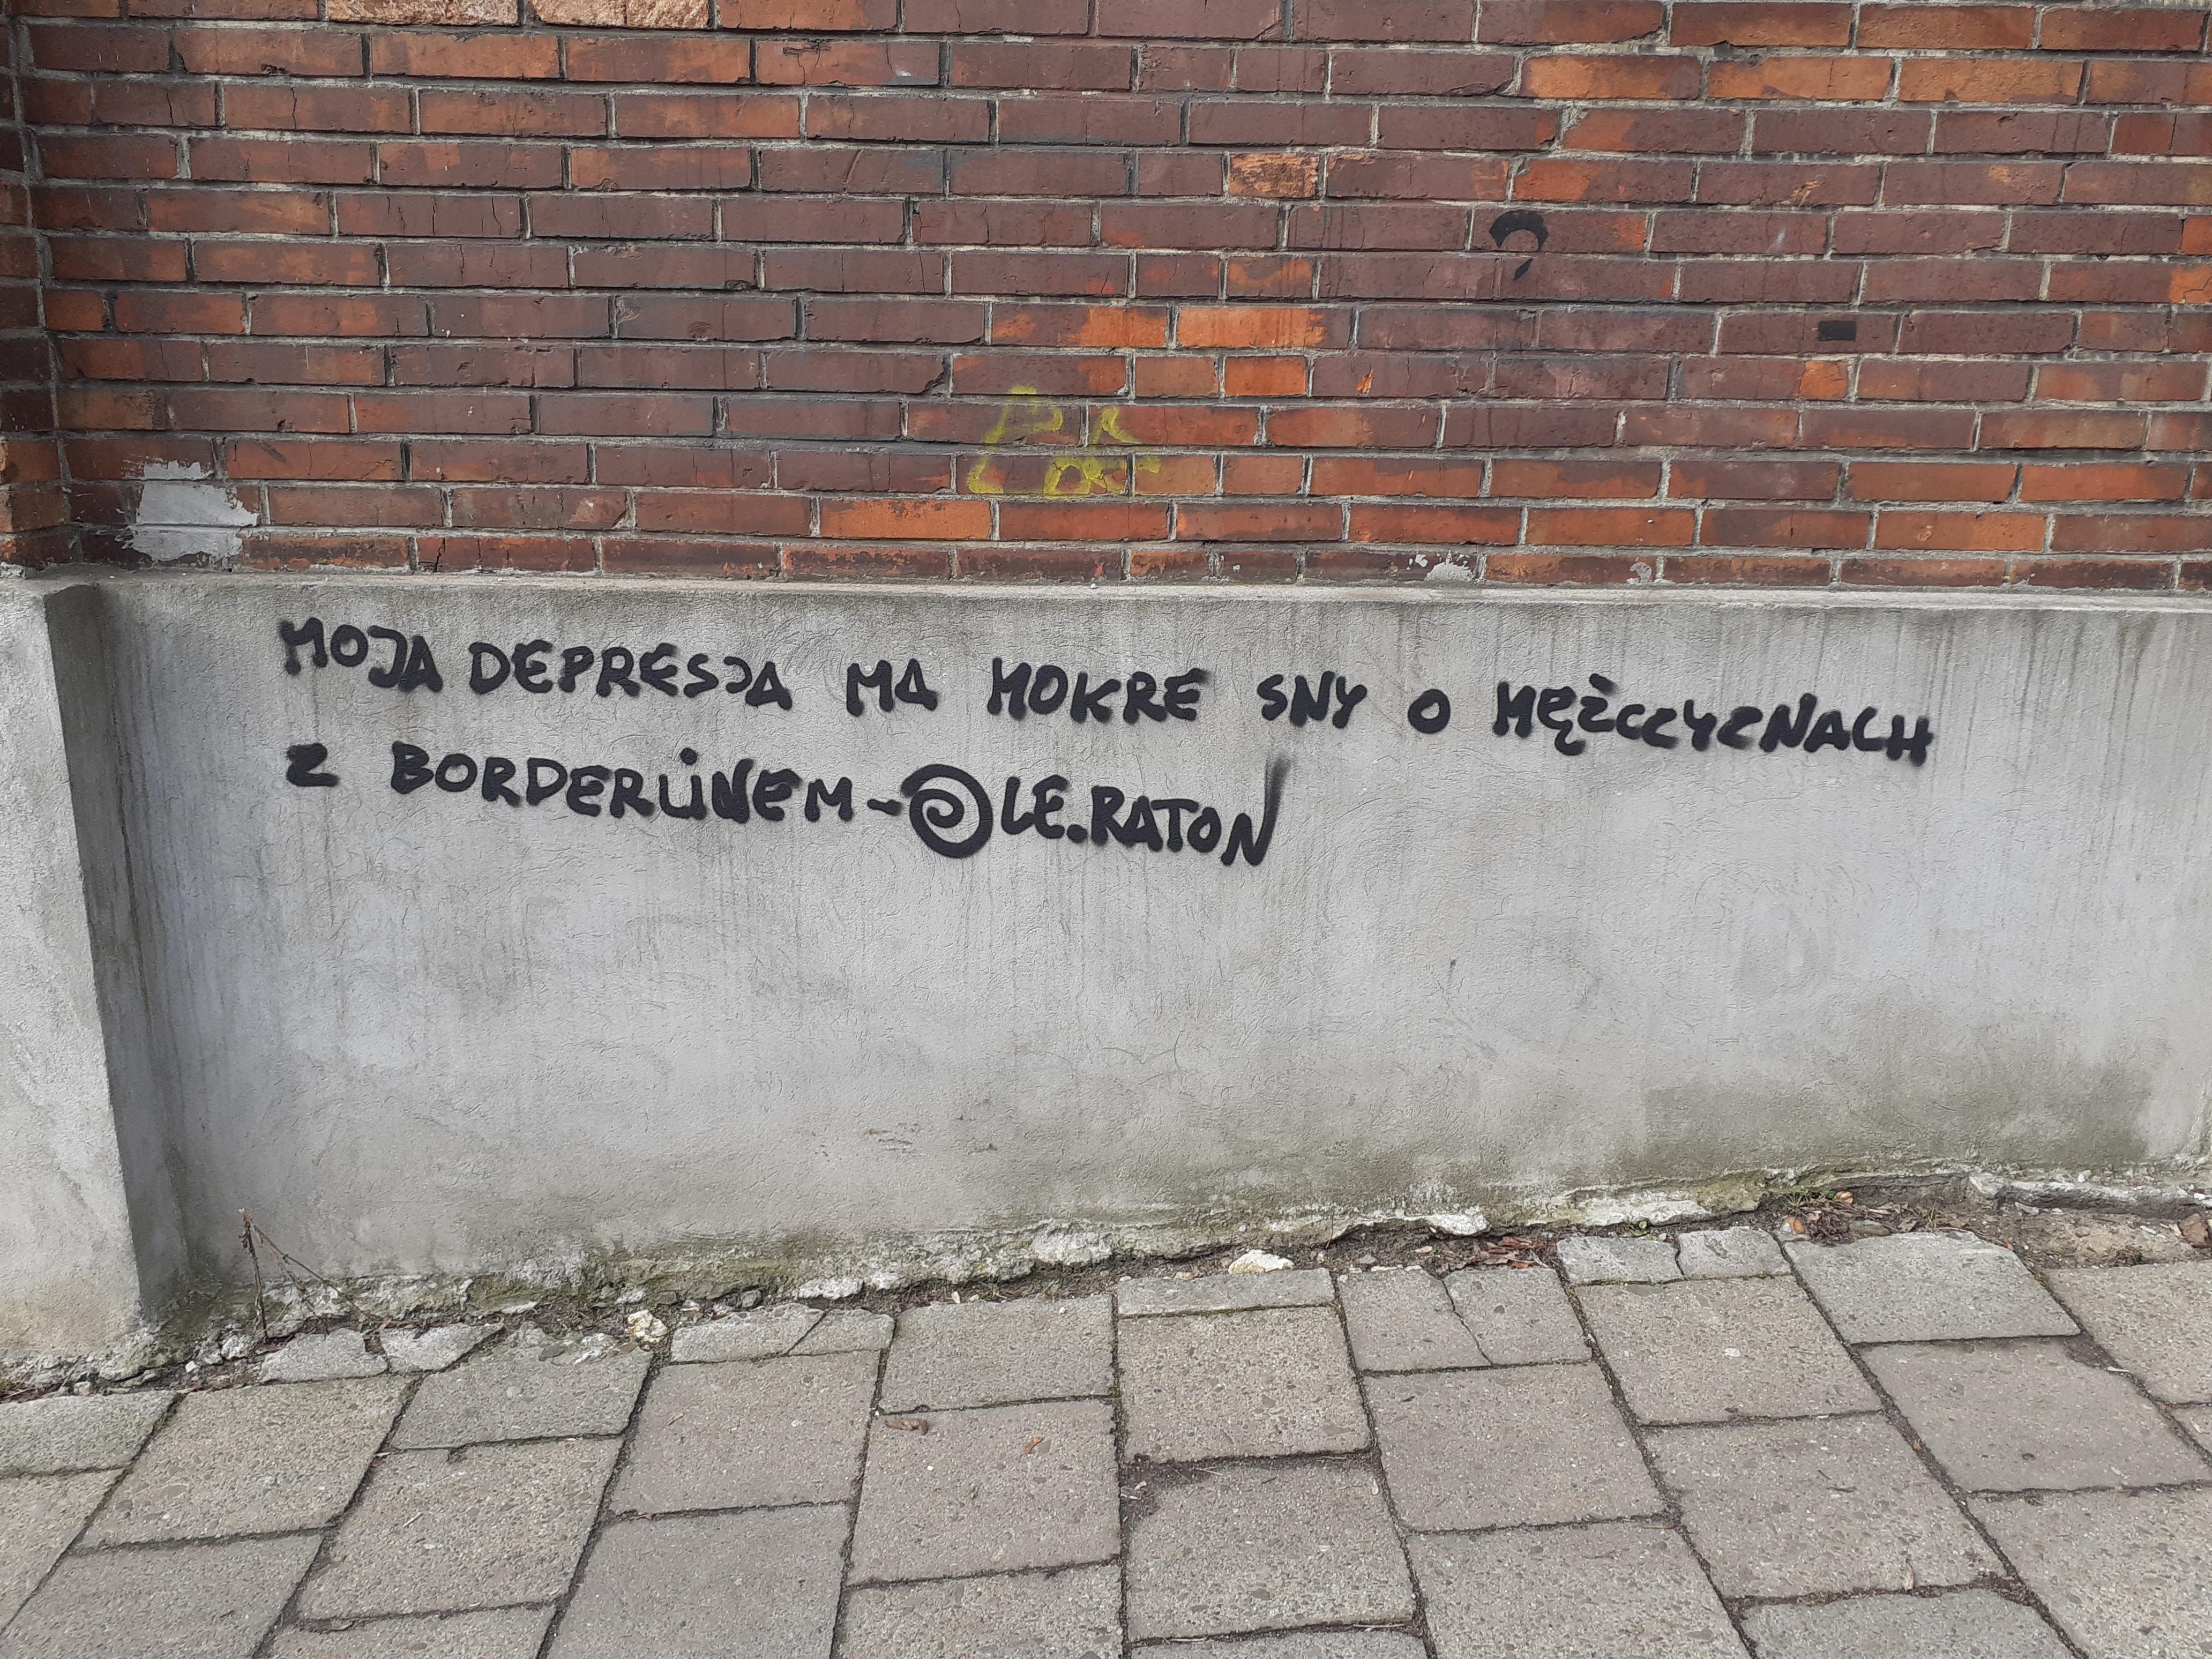 MOJA DEPRESJA MA MOKRE SNY O MĘŻCZYZNACH
Z BORDERLINEM - @LE.RATON